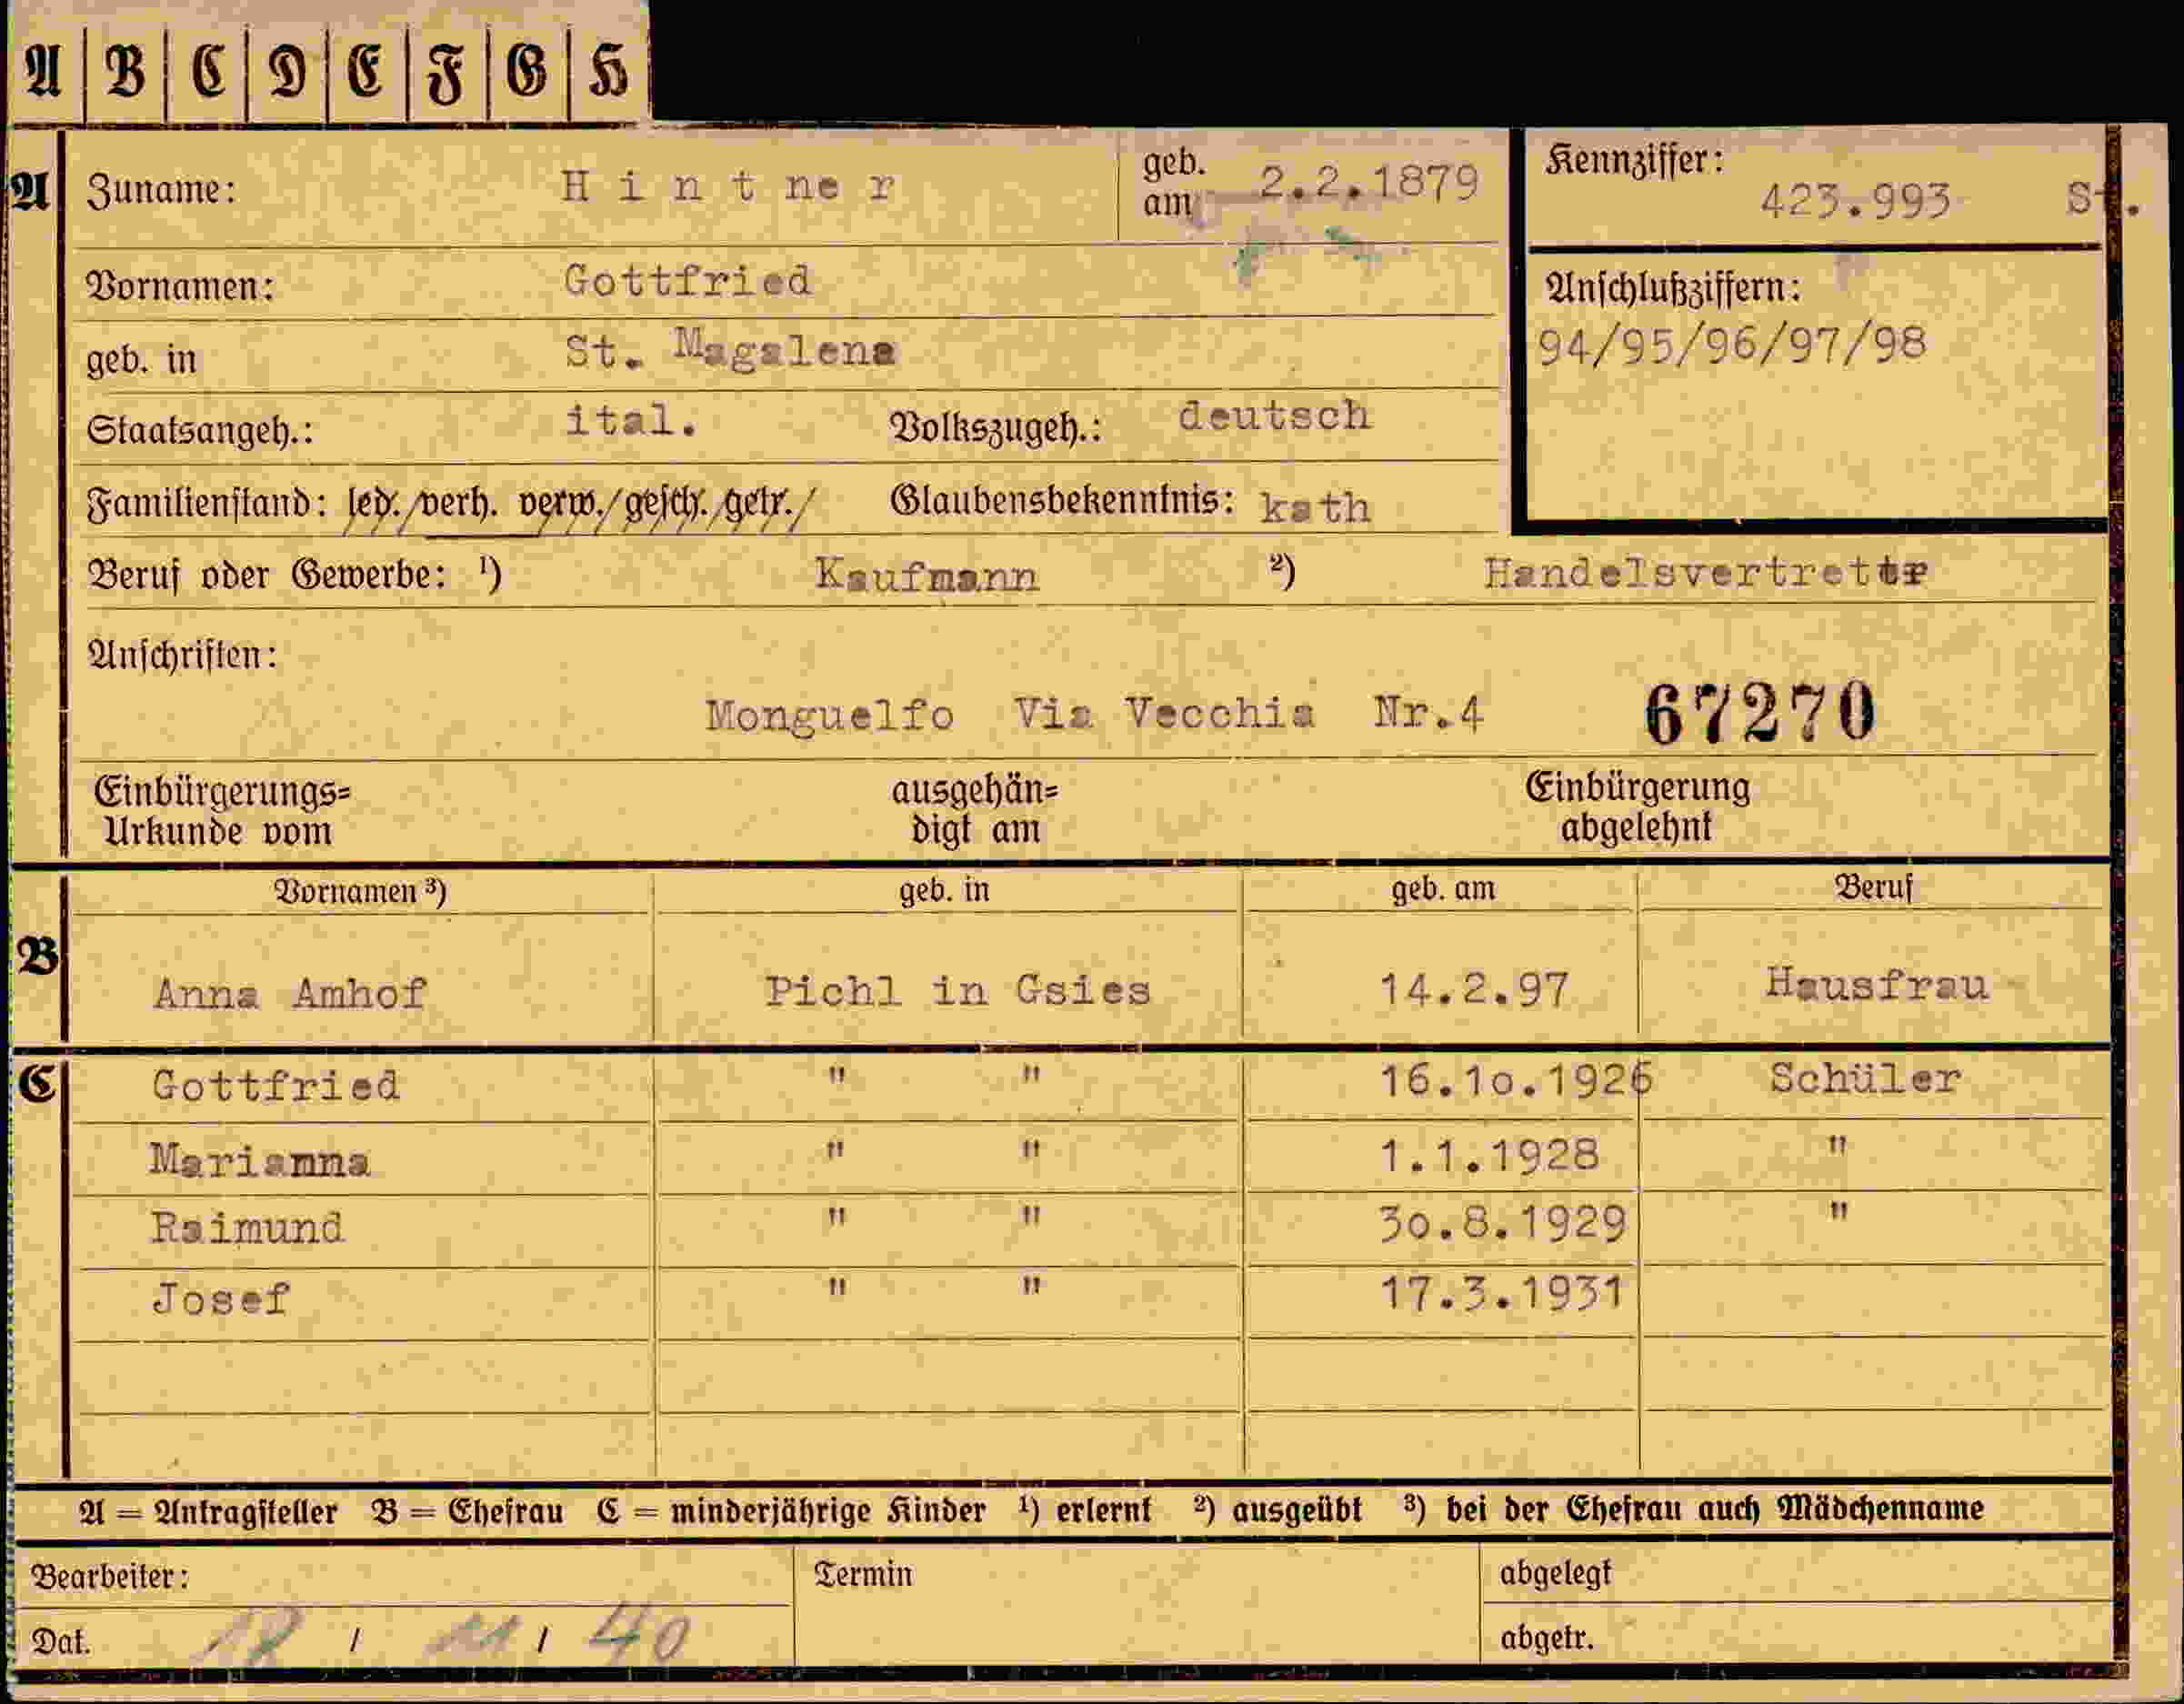 A B C D E F G H
A Zuname: Hintner geb. am 2.2.1879 Kennziffer: 423.993 St.
Vornamen: Gottfried Anschlußziffern:
geb. in St. Magalena 94/95/96/97/98
Staatsangeh.: ital. Volkszugeh.: deutsch
Familienstand: led./verh. verw./gesch./getr./ Glaubensbekenntnis: kath
Beruf oder Gewerbe: ¹) Kaufmann ²) Handelsvertreter
Anschriften:
Monguelfo Via Vecchia Nr.4 67270
Einbürgerungs= ausgehän= Einbürgerung
Urkunde vom digt am abgelehnt
Vornamen ³) geb. in geb. am Beruf
B Anna Amhof Pichl in Gsies 14.2.97 Hausfrau
C Gottfried " " 16.10.1926 Schüler
Marianna " " 1.1.1928 "
Raimund " " 30.8.1929 "
Josef " " 17.3.1931
A = Antragsteller B = Ehefrau C = minderjährige Kinder ¹) erlernt ²) ausgeübt ³) bei der Ehefrau auch Mädchenname
Bearbeiter: Termin abgelegt
Dat. / / 40 abgetr.